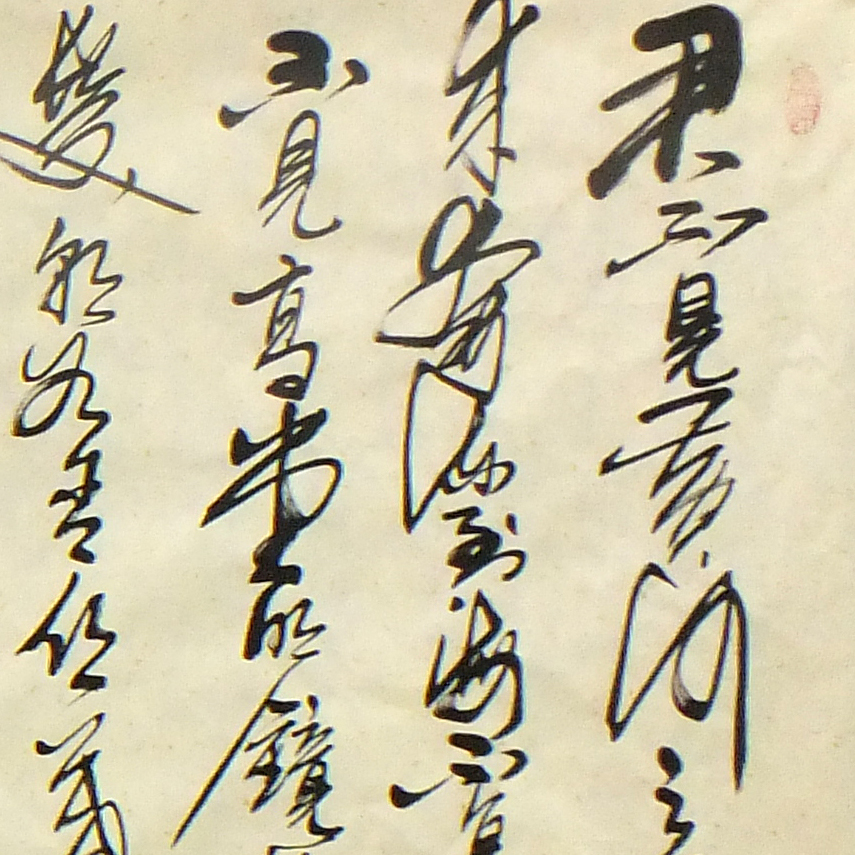 君不見黃河之
來奔流到海不
不見高堂明鏡
髮朝如青絲暮